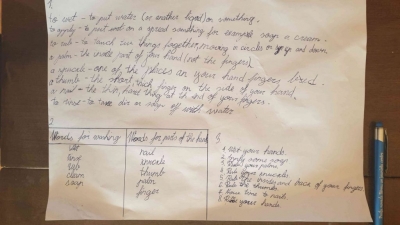 to wet - to put water (or another liquid) on something.
to apply - to put on a spread something for example soap or cream.
to rub - to touch two things together, moving in circles or up and down.
a palm - the inside part of your hand (not the fingers).
a knuckle - one of the places on your hand fingers
a thumb - the short thick finger on the side of your hand.
a nail - the thin, hard thing at the end of your fingers.
to rinse - to soap off with water
2
Words for washing Words for parts of the hand
wet nail
rinse knuckle
rub thumb
clean palm
soap finger
3.
1. Wet your hands.
2. Apply some soap
3. Rub your palms
4. Rub your knuckles
5. Rub the and back of your fingers
6. Rub the thumbs
7. time to nails
8. Rinse your hands.